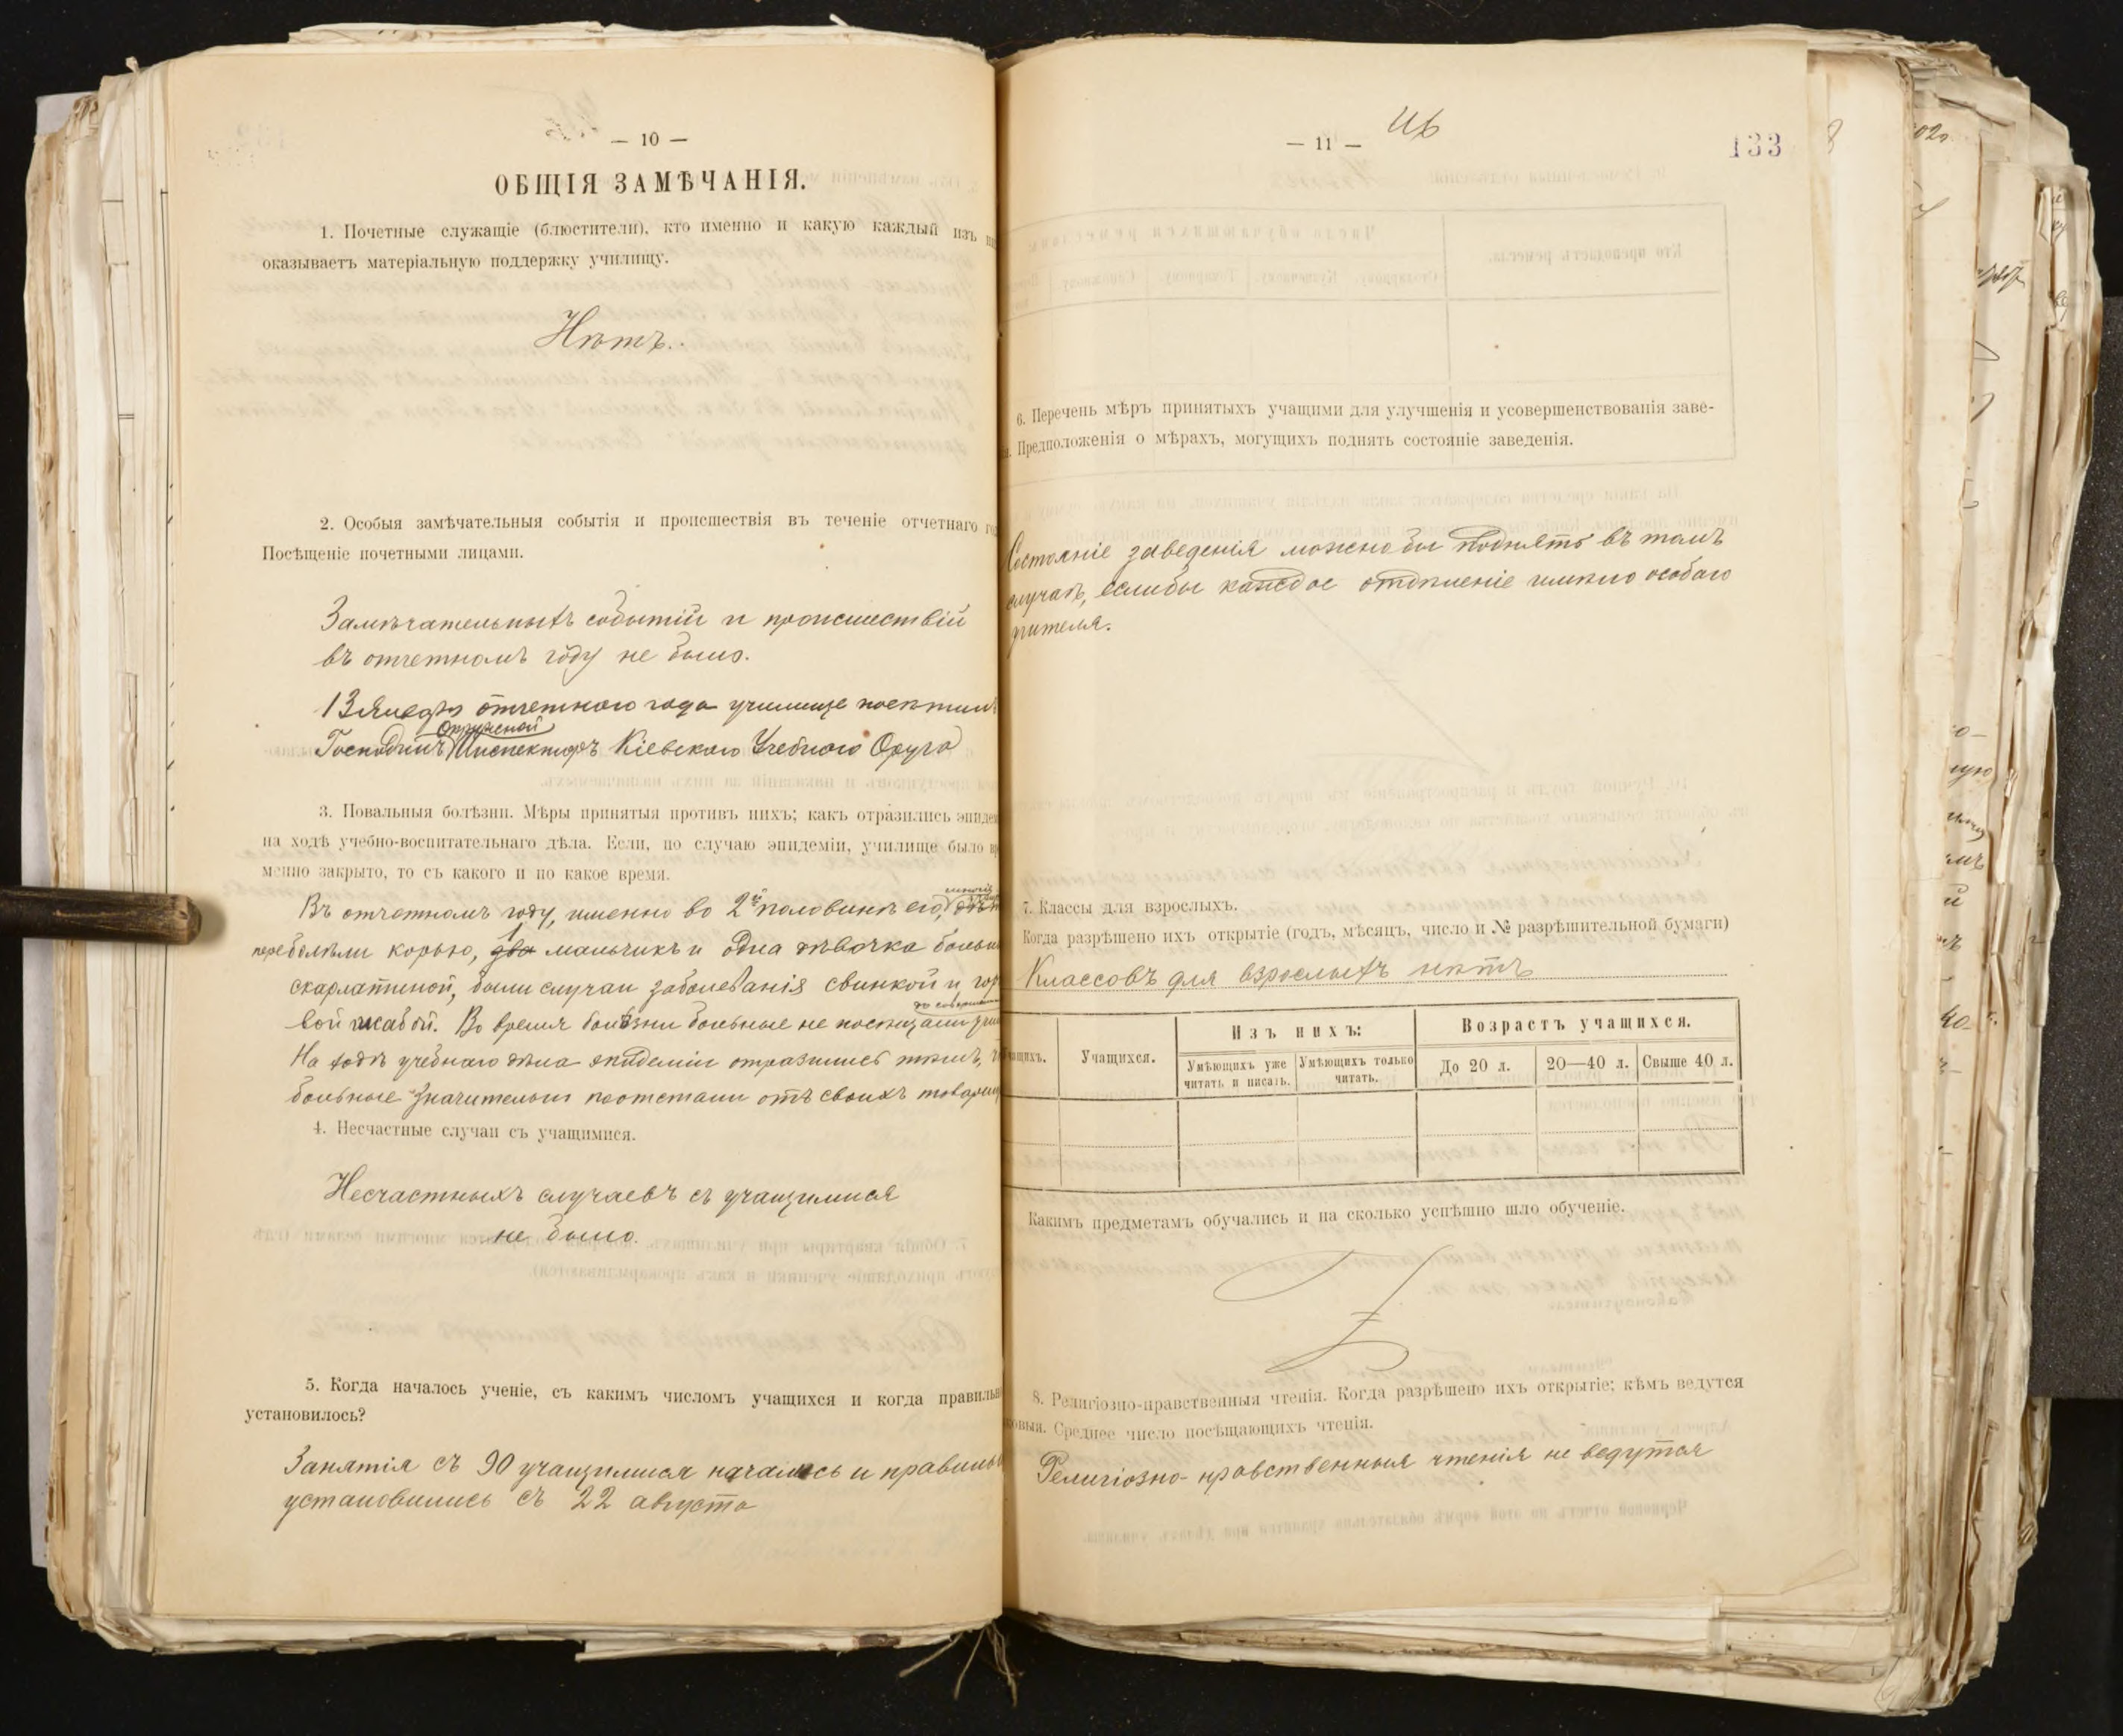 — 10 —
ОБЩІЯ ЗАМѢЧАНІЯ.
1. Почетные служащіе (блюстители), кто именно и какую каждый изъ
оказываетъ матеріальную поддержку училищу.
Нѣтъ.
2. Особыя замѣчательныя событія и происшествія въ теченіе отчетнаго
Посѣщеніе почетными лицами.
Замѣчательныхъ событій и происшествій
въ отчетномъ году не было.
13 Января отчетного года училище посѣтилъ
Окружной
Господинъ Инспекторъ Кіевского Учебного Округа
3. Повальныя болѣзни. Мѣры принятыя противъ нихъ; какъ отразились эпидем
на ходѣ учебно-воспитательнаго дѣла. Если, по случаю эпидеміи, училище было вр
менно закрыто, то съ какого и по какое время.
многіе
Въ отчетномъ году, именно во 2й половинѣ его,
1
переболѣли корью, два мальчикъ и одна дѣвочка больны
скарлатиной, были случаи заболеванія свинкой и гор
до соверш
вой жабой. Во время болѣзни больные не посѣщали учи
На ходѣ учебнаго дѣла эпидеміи отразились тѣмъ, ч
больные значительно поотстали отъ своихъ товарищ
4. Несчастные случаи съ учащимися.
Несчастныхъ случаевъ съ учащимися
не было.
5. Когда началось ученіе, съ какимъ числомъ учащихся и когда правильн
установилось?
Занятія съ 90 учащимися начались и правильн
установились съ 22 августа
— 11 —
46
133
6. Перечень мѣръ принятыхъ учащими для улучшенія и усовершенствованія заве-
Предположенія о мѣрахъ, могущихъ поднять состояніе заведенія.
Состояніе заведенія можно бы поднять въ томъ
случаѣ, еслибы каждое отдѣленіе имѣло особаго
учителя.
7. Классы для взрослыхъ.
Когда разрѣшено ихъ открытіе (годъ, мѣсяцъ, число и № разрѣшительной бумаги)
Классовъ для взрослыхъ нѣтъ
ащихъ.
Учащихся.
Изъ нихъ:
Умѣющихъ уже читать и писать.
Умѣющихъ только читать.
Возрастъ учащихся.
До 20 л.
20—40 л.
Свыше 40 л.
Какимъ предметамъ обучались и на сколько успѣшно шло обученіе.
8. Религіозно-нравственныя чтенія. Когда разрѣшено ихъ открытіе; кѣмъ ведутся
ковыя. Среднее число посѣщающихъ чтенія.
Религіозно-нравственныя чтенія не ведутся